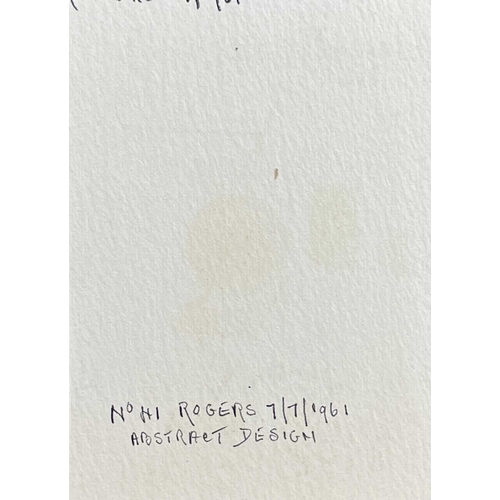 Nº H1 ROGERS 7/7/1961
ABSTRACT DESIGN